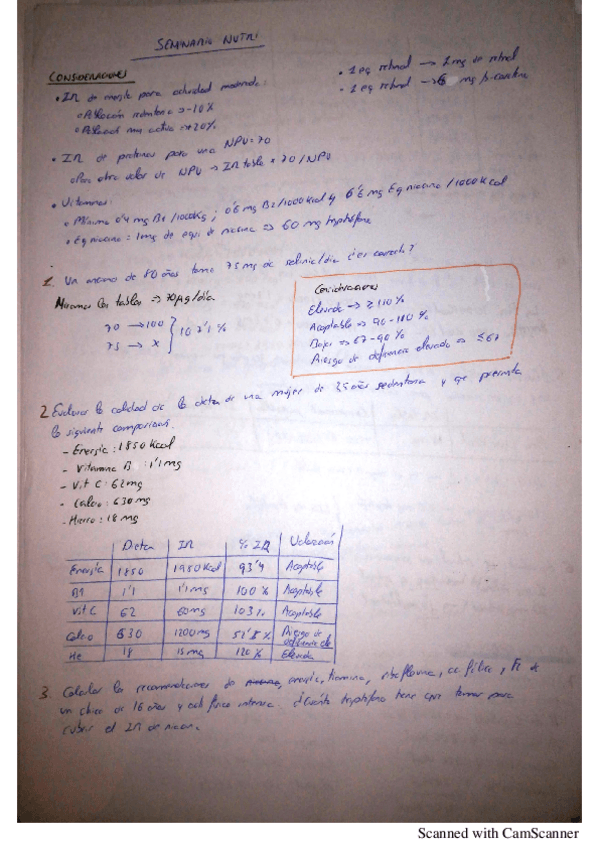 SEMINARIO NUTRI
CONSIDERACIONES
• 1 eq retinol → 1 mg de retinol
• 1 eq retinol → 6 mg β-carotena
• IR de energía para actividad moderada:
o Población sedentaria → -10%
o Población muy activa → +20%
• IR de proteínas para una NPU = 70
o Para otro valor de NPU → IR tabla × 70/NPU
• Vitaminas:
o Mínimo 0'4 mg B1/1000Kg; 0'6 mg B2/1000kcal y 6'6 mg Eq niacina/1000kcal
o Eq niacina = 1mg de niacina ⇒ 60 mg triptófano
1. Un anciano de 80 años toma 75 mg de selenio/día ¿es correcto?
Miramos las tablas → 70 μg/día
70 → 100
75 → x
107'1 %
Consideraciones
Elevado → ≥ 110%
Aceptable → 90-110 %
Bajo → 67-90 %
Riesgo de deficiencia elevado → ≤ 67
2. Evaluar la calidad de la dieta de una mujer de 35 años sedentaria y que presenta
la siguiente composición.
- Energía: 1850 Kcal
- Vitamina B : 1'1mg
- Vit C: 62mg
- Calcio: 630 mg
- Hierro: 18 mg
Dieta IR % IR Valoración
Energía 1850 1950 Kcal 93'4 Aceptable
B1 1'1 1'1 mg 100 % Aceptable
Vit C 62 60mg 103% Aceptable
Calcio 630 1200mg 51'8 % Riesgo de deficiencia
He 18 15mg 120% Elevada
3. Calcular las recomendaciones de energía, tiamina, riboflavina, fibra, Fe de
un chico de 16 años y act física intensa. ¿Cuánto triptófano tiene que tomar para
cubrir el IR de niacina.
Scanned with CamScanner